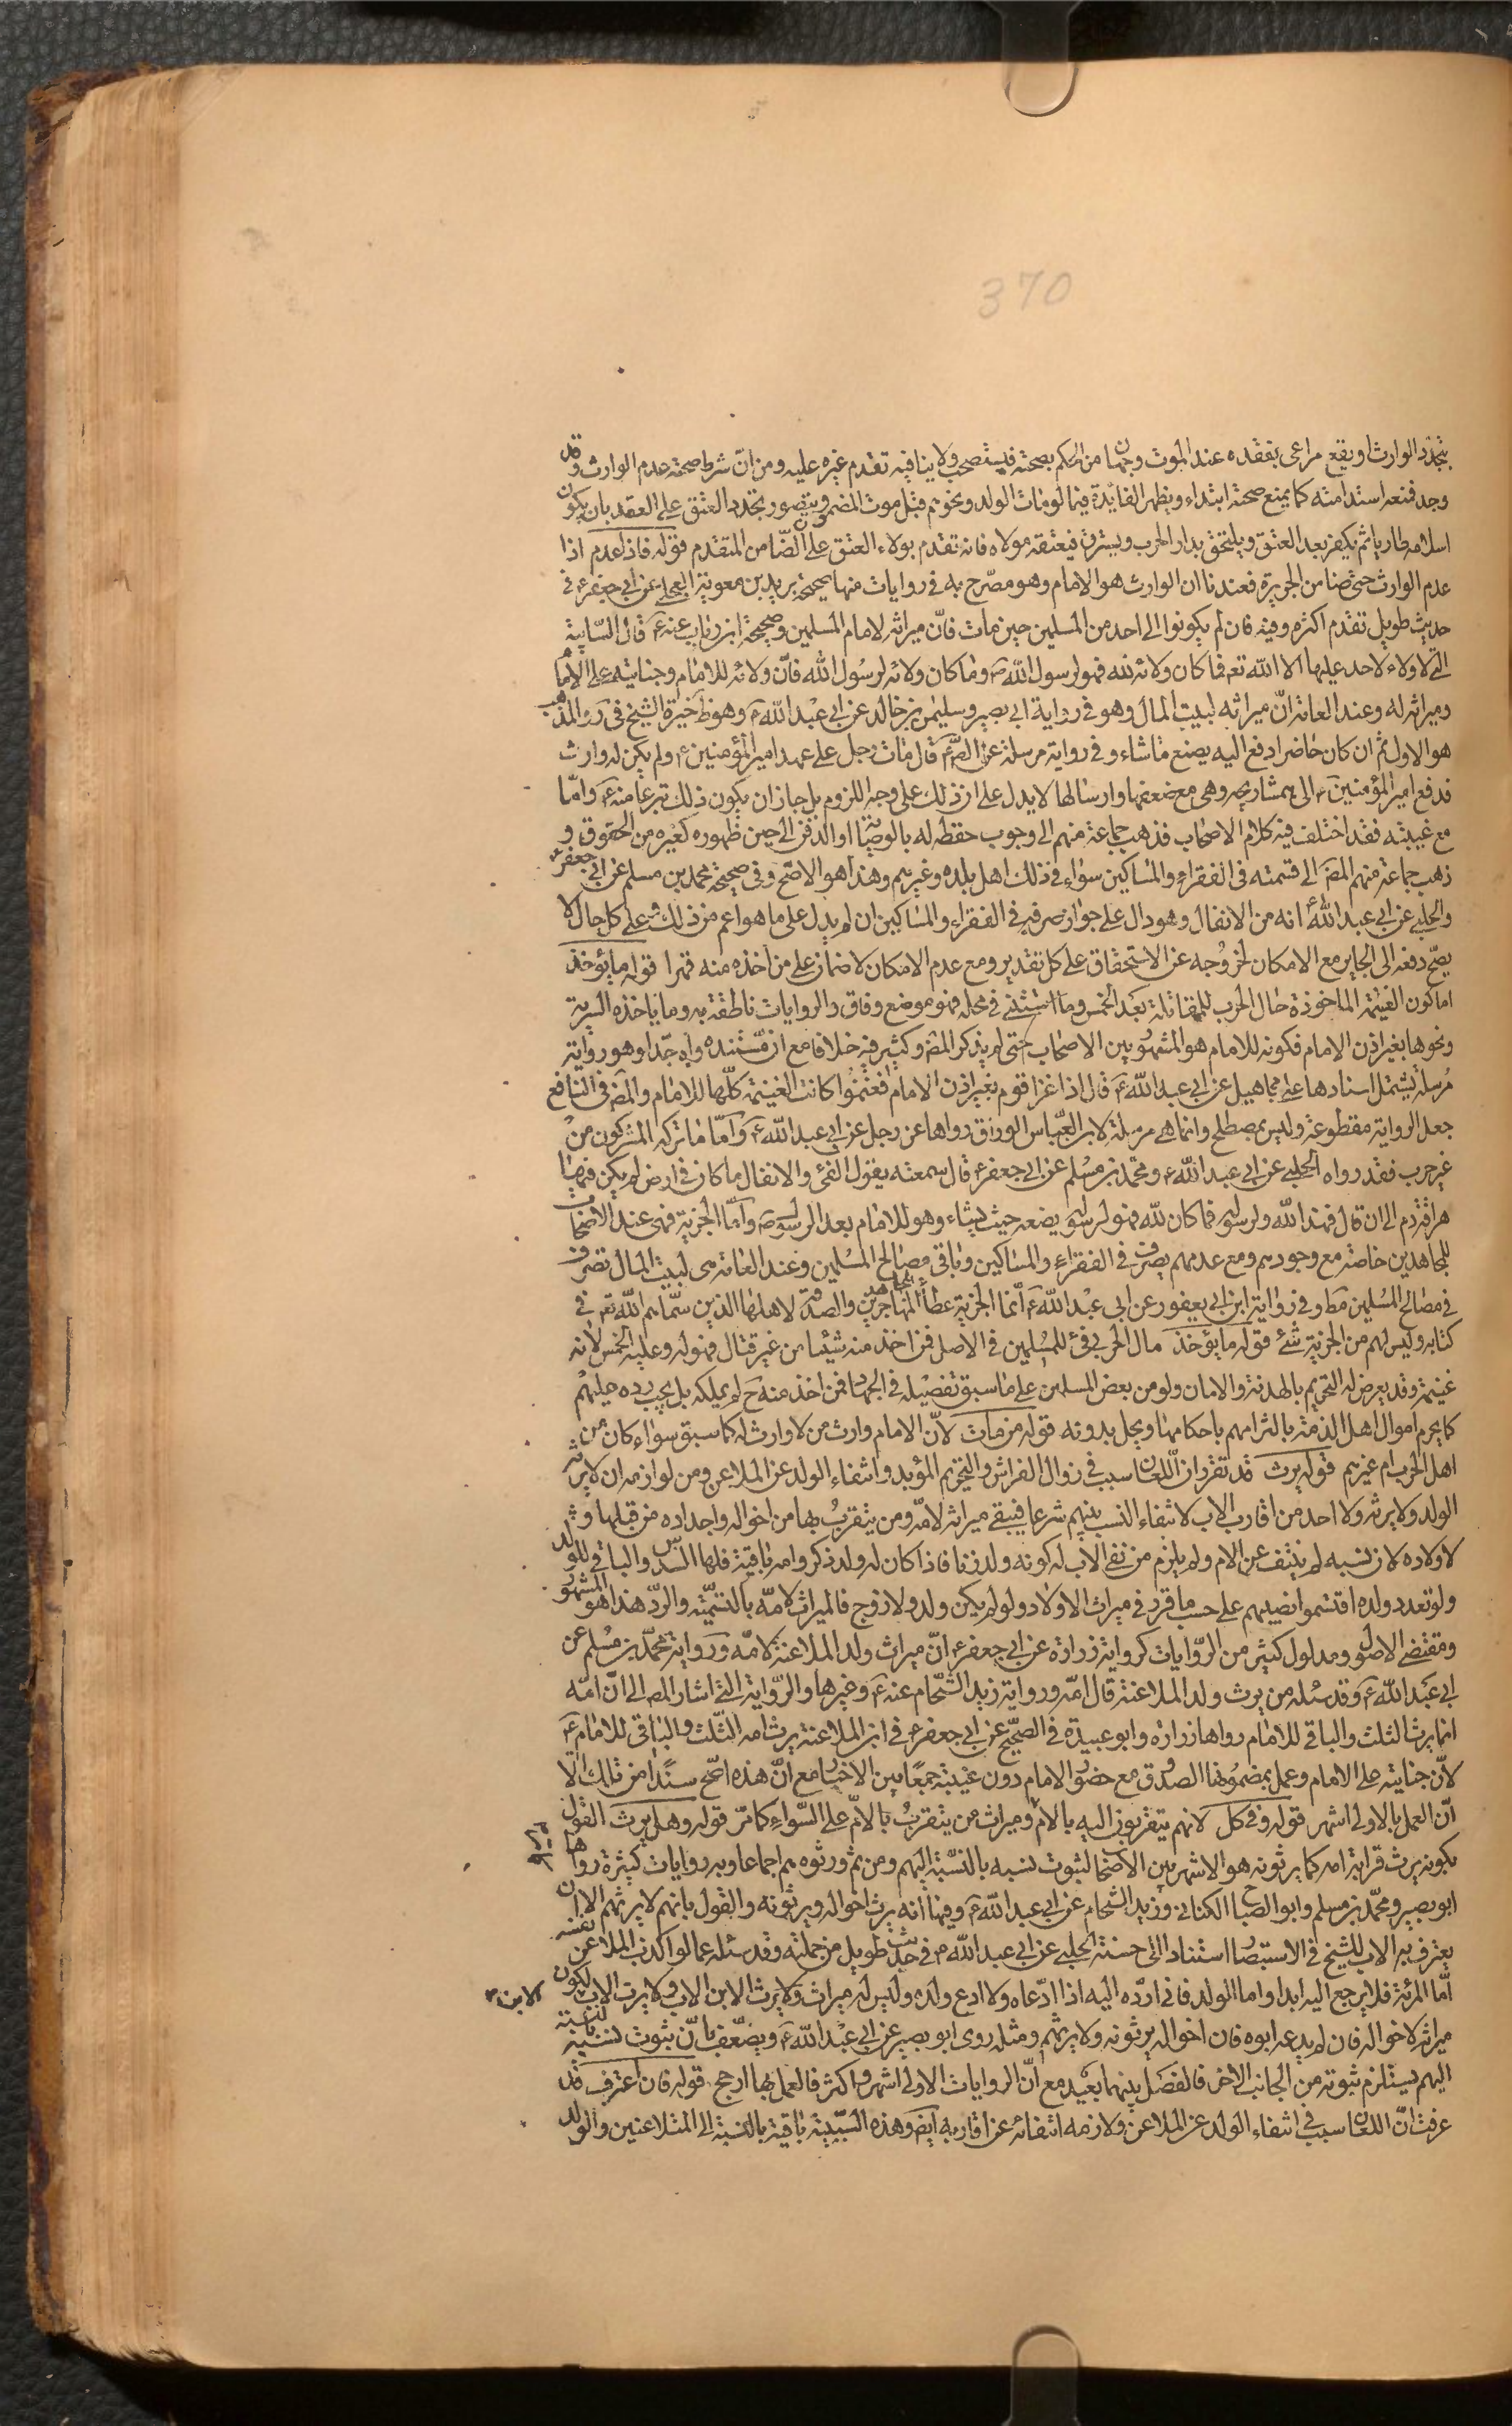 370
بتجدد الوارث او يقع مراعى بفقده عند الموت وجهان من الحكم بصحته فيستصحب ولا ينافيه تقدم غيره عليه ومن ان شرط صحته عدم الوارث وقد
وجد فمنعه استدامته كما يمنع صحته ابتداء ويظهر الفائدة فيما لو مات الولد ونحوهم قبل موت المضمون ويتصور تجدد العتق على العقد بان يكون
اسلامه طاريا ثم يكفر بعد العتق ويلتحق بدار الحرب ويسترق فيعتقه مولاه فانه تقدم بولاء العتق على الضامن المتقدم قوله فاذا عدم اذا
عدم الوارث حتى ضامن الجريرة فعندنا ان الوارث هو الامام وهو مصرح به في روايات منها صحيحة بريد بن معوية العجلي عن ابي جعفر ع في
حديث طويل تقدم اكثره وفيه فان لم يكونوا الى احد من المسلمين حين مات فان ميراثه لامام المسلمين وصحيحة ابن رئاب عنه ع قال السايبة
التي لا ولاء لاحد عليها الا الله تع فما كان ولائه لله فهو لرسول الله ص وما كان ولائه لرسول الله فان ولائه للامام وجنايته على الامام
وميراثه له وعند العامة ان ميراثه لبيت المال وهو في رواية ابي بصير وسليمن بن خالد عن ابي عبد الله ع وهو ظ خيرة الشيخ في والمذهب
هو الاول ثم ان كان حاضرا دفع اليه يصنع ما شاء وفي رواية مرسلة عن الص ع قال مات رجل على عهد امير المؤمنين ع ولم يكن له وارث
فدفع امير المؤمنين ع الى همشاريجه وهي مع ضعفها وارسالها لا يدل على ان ذلك على وجه اللزوم بل جاز ان يكون ذلك تبرعا منه ع واما
مع غيبته فقد اختلف فيه كلام الاصحاب فذهب جماعة منهم الى وجوب حفظه له بالوصاية او الدفن الى حين ظهوره كغيره من الحقوق و
ذهب جماعة منهم المص الى قسمته في الفقراء والمساكين سواء في ذلك اهل بلده وغيرهم وهذا هو الاصح وفي صحيحة محمد بن مسلم عن ابي جعفر ع
والحلبي عن ابي عبد الله ع انه من الانفال وهو دال على جواز صرفه في الفقراء والمساكين ان لم يدل على ما هو اعم من ذلك وعلى كل حال لا
يصح دفعه الى الجاير مع الامكان لخروجه عن الاستحقاق على كل تقدير ومع عدم الامكان لا ضمان على من اخذه منه قهرا قوله ما يؤخذ
اما كون الغنيمة الماخوذة حال الحرب للمقاتلة بعد الخمس وما استثنى في محله فهو موضع وفاق والروايات ناطقة به وما ياخذه السرية
ونحوها بغير اذن الامام فكونه للامام هو المشهور بين الاصحاب حتى لم يذكر المص وكثير فيه خلافا مع ان مستنده واه جدا وهو رواية
مرسلة يشتمل اسنادها على مجاهيل عن ابي عبد الله ع قال اذا غزا قوم بغير اذن الامام فغنموا كانت الغنيمة كلها للامام والمص في النافع
جعل الرواية مقطوعة وليس بمصطلح وانما هي مرسلة لان العباس الوراق رواها عن رجل عن ابي عبد الله ع واما ما تركه المشركون من
غير حرب فقد رواه الحلبي عن ابي عبد الله ع ومحمد بن مسلم عن ابي جعفر ع قال سمعته يقول الفئ والانفال ما كان في ارض لم يكن فيها
هراقة دم الى ان قال فهذا لله ولرسوله فما كان لله فهو لرسوله يضعه حيث يشاء وهو للامام بعد الرسول ص واما الجزية فهي عند الاصحاب
للمجاهدين خاصة مع وجودهم ومع عدمهم يصرف في الفقراء والمساكين وباقي مصالح المسلمين وعند العامة هي لبيت المال تصرف
في مصالح المسلمين مط وفي رواية ابن ابي يعفور عن ابي عبد الله ع انما الجزية عطاء المهاجرين والصدقة لاهلها الذين سماهم الله تع في
كتابه وليس لهم من الجزية شئ قوله ما يؤخذ مال الحربي فئ للمسلمين في الاصل فمن اخذ منه شيئا من غير قتال فهو له وعليه الخمس لانه
غنيمة وقد يعرض له التحريم بالهدنة والامان ولو من بعض المسلمين على ما سبق تفصيله في الجهاد فمن اخذ منه ح لم يملكه بل يجب رده عليهم
كما يحرم اموال اهل الذمة بالتزامهم باحكامها ويحل بدونه قوله من مات لان الامام وارث من لا وارث له كما سبق سواء كان من
اهل الحرب ام غيرهم قوله يرث قد تقرر ان اللعان سبب في زوال الفراش والتحريم المؤبد وانتفاء الولد عن الملاعن ومن لوازمه ان لا يرثه
الولد ولا يرثه ولا احد من اقارب الاب لانتفاء النسب بينهم شرعا فيبقى ميراثه لامه ومن يتقرب بها من اخواله واجداده من قبلها و
لاولاده لان نسبه لم ينتف عن الام ولم يلزم من نفي الاب له كونه ولد زنا فاذا كان له ولد ذكر وامه باقية فلها السدس والباقي للولد
ولو تعدد ولده اقتسموا نصيبهم على حسب ما قرر في ميراث الاولاد ولو لم يكن ولد ولا زوج فالميراث لامه بالتسمية والرد هذا هو المشهور
ومقتضى الاصول ومدلول كثير من الروايات كرواية زرارة عن ابي جعفر ع ان ميراث ولد الملاعنة لامه ورواية محمد بن مسلم عن
ابي عبد الله ع وقد سئله من يرث ولد الملاعنة قال امه ورواية زيد الشحام عنه ع وغيرها والرواية التي اشار المص الى ان امه
انما يرث الثلث والباقي للامام رواها زرارة وابو عبيدة في الصحيح عن ابي جعفر ع في ابن الملاعنة يرث امه الثلث والباقي للامام ع
لان جنايته على الامام وعمل بمضمونها الصدوق مع حضور الامام دون غيبته جمعا بين الاخبار مع ان هذه اصح سندا من تلك الا
ان العمل بالاولى اشهر قوله وفي كل لانهم يتقربون اليه بالام وميراث من يتقرب بالام على السواء كما مر قوله وهل يرث القول
بكونه يرث قرابة امه كما يرثونه هو الاشهر بين الاصحاب لثبوت نسبه بالنسبة اليهم ومن ثم ورثوه هم اجماعا وبه روايات كثيرة رواها
ابو بصير ومحمد بن مسلم وابو الصباح الكناني وزيد الشحام عن ابي عبد الله ع وفيها انه يرث اخواله ويرثونه والقول بانهم لا يرثهم الا ان
يعترف به الاب للشيخ في الاستبصار استنادا الى حسنة الحلبي عن ابي عبد الله ع في حديث طويل من جملته وقد سئله عما لو اكذب الملاعن نفسه
اما المرئة فلا يرجع اليه ابدا واما الولد فاني ارده اليه اذا ادعاه ولا ادع ولده وليس له ميراث ويرث الابن الاب ولا يرث الاب الابن يكون
ميراثه لاخواله فان لم يدعه ابوه فان اخواله يرثونه ولا يرثهم ومثله روى ابو بصير عن ابي عبد الله ع ويضعف بان ثبوت نسبه بالنسبة
اليهم يستلزم ثبوته من الجانب الاخر فالفصل بينهما بعيد مع ان الروايات الاولى اشهر واكثر فالعمل بها ارجح قوله فان اعترف قد
عرفت ان اللعان سبب في انتفاء الولد عن الملاعن ولازمه انتفائه عن اقاربه ايض وهذه السببية باقية بالنسبة الى المتلاعنين والولد